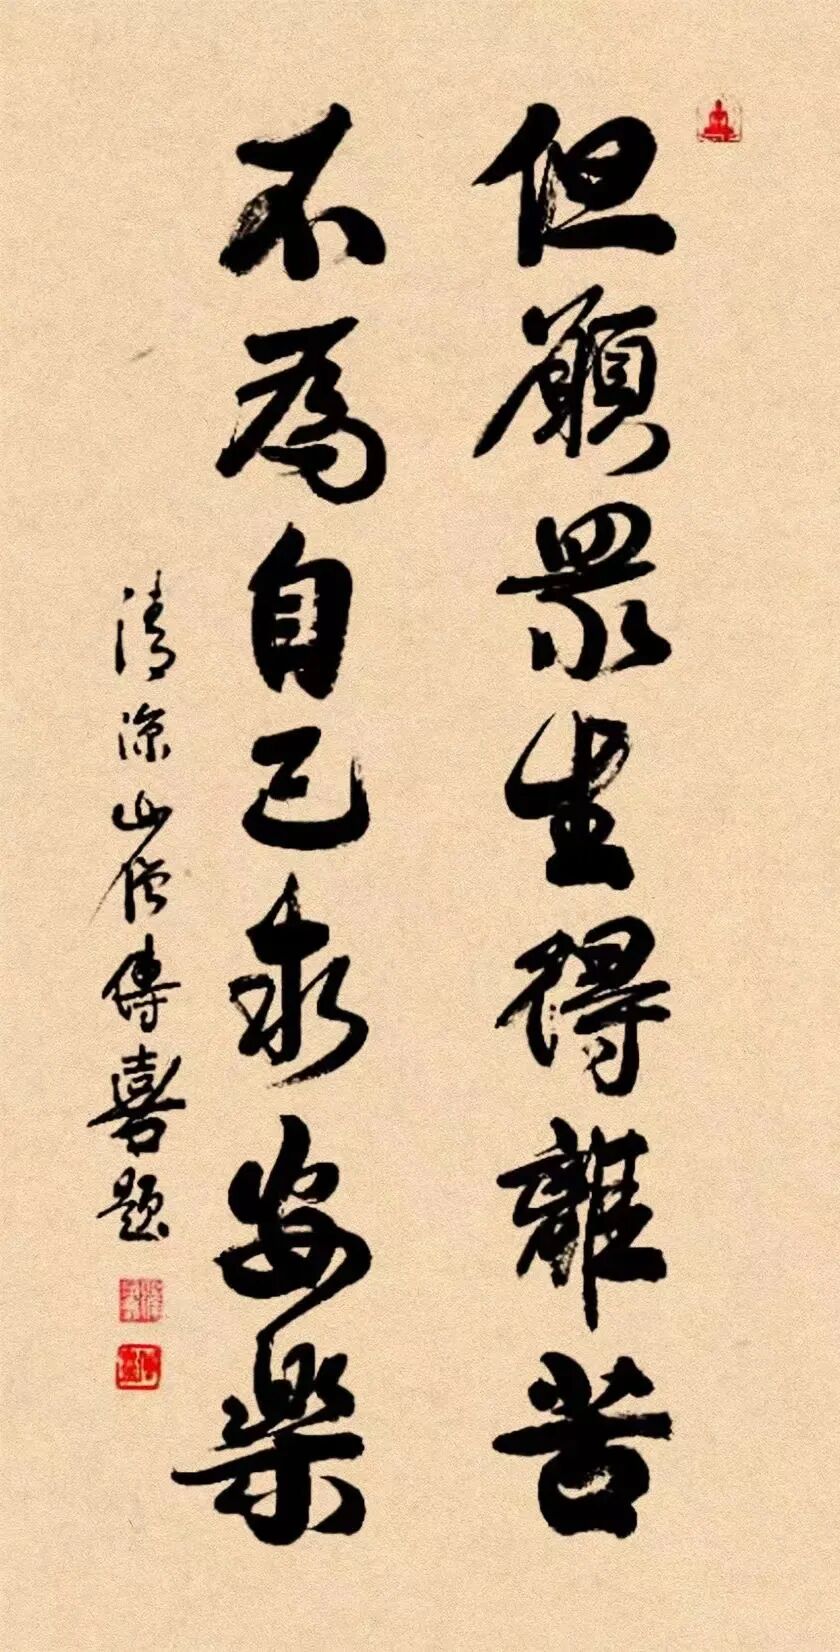 但願眾生得離苦
不為自己求安樂
清凉山僧傳喜題